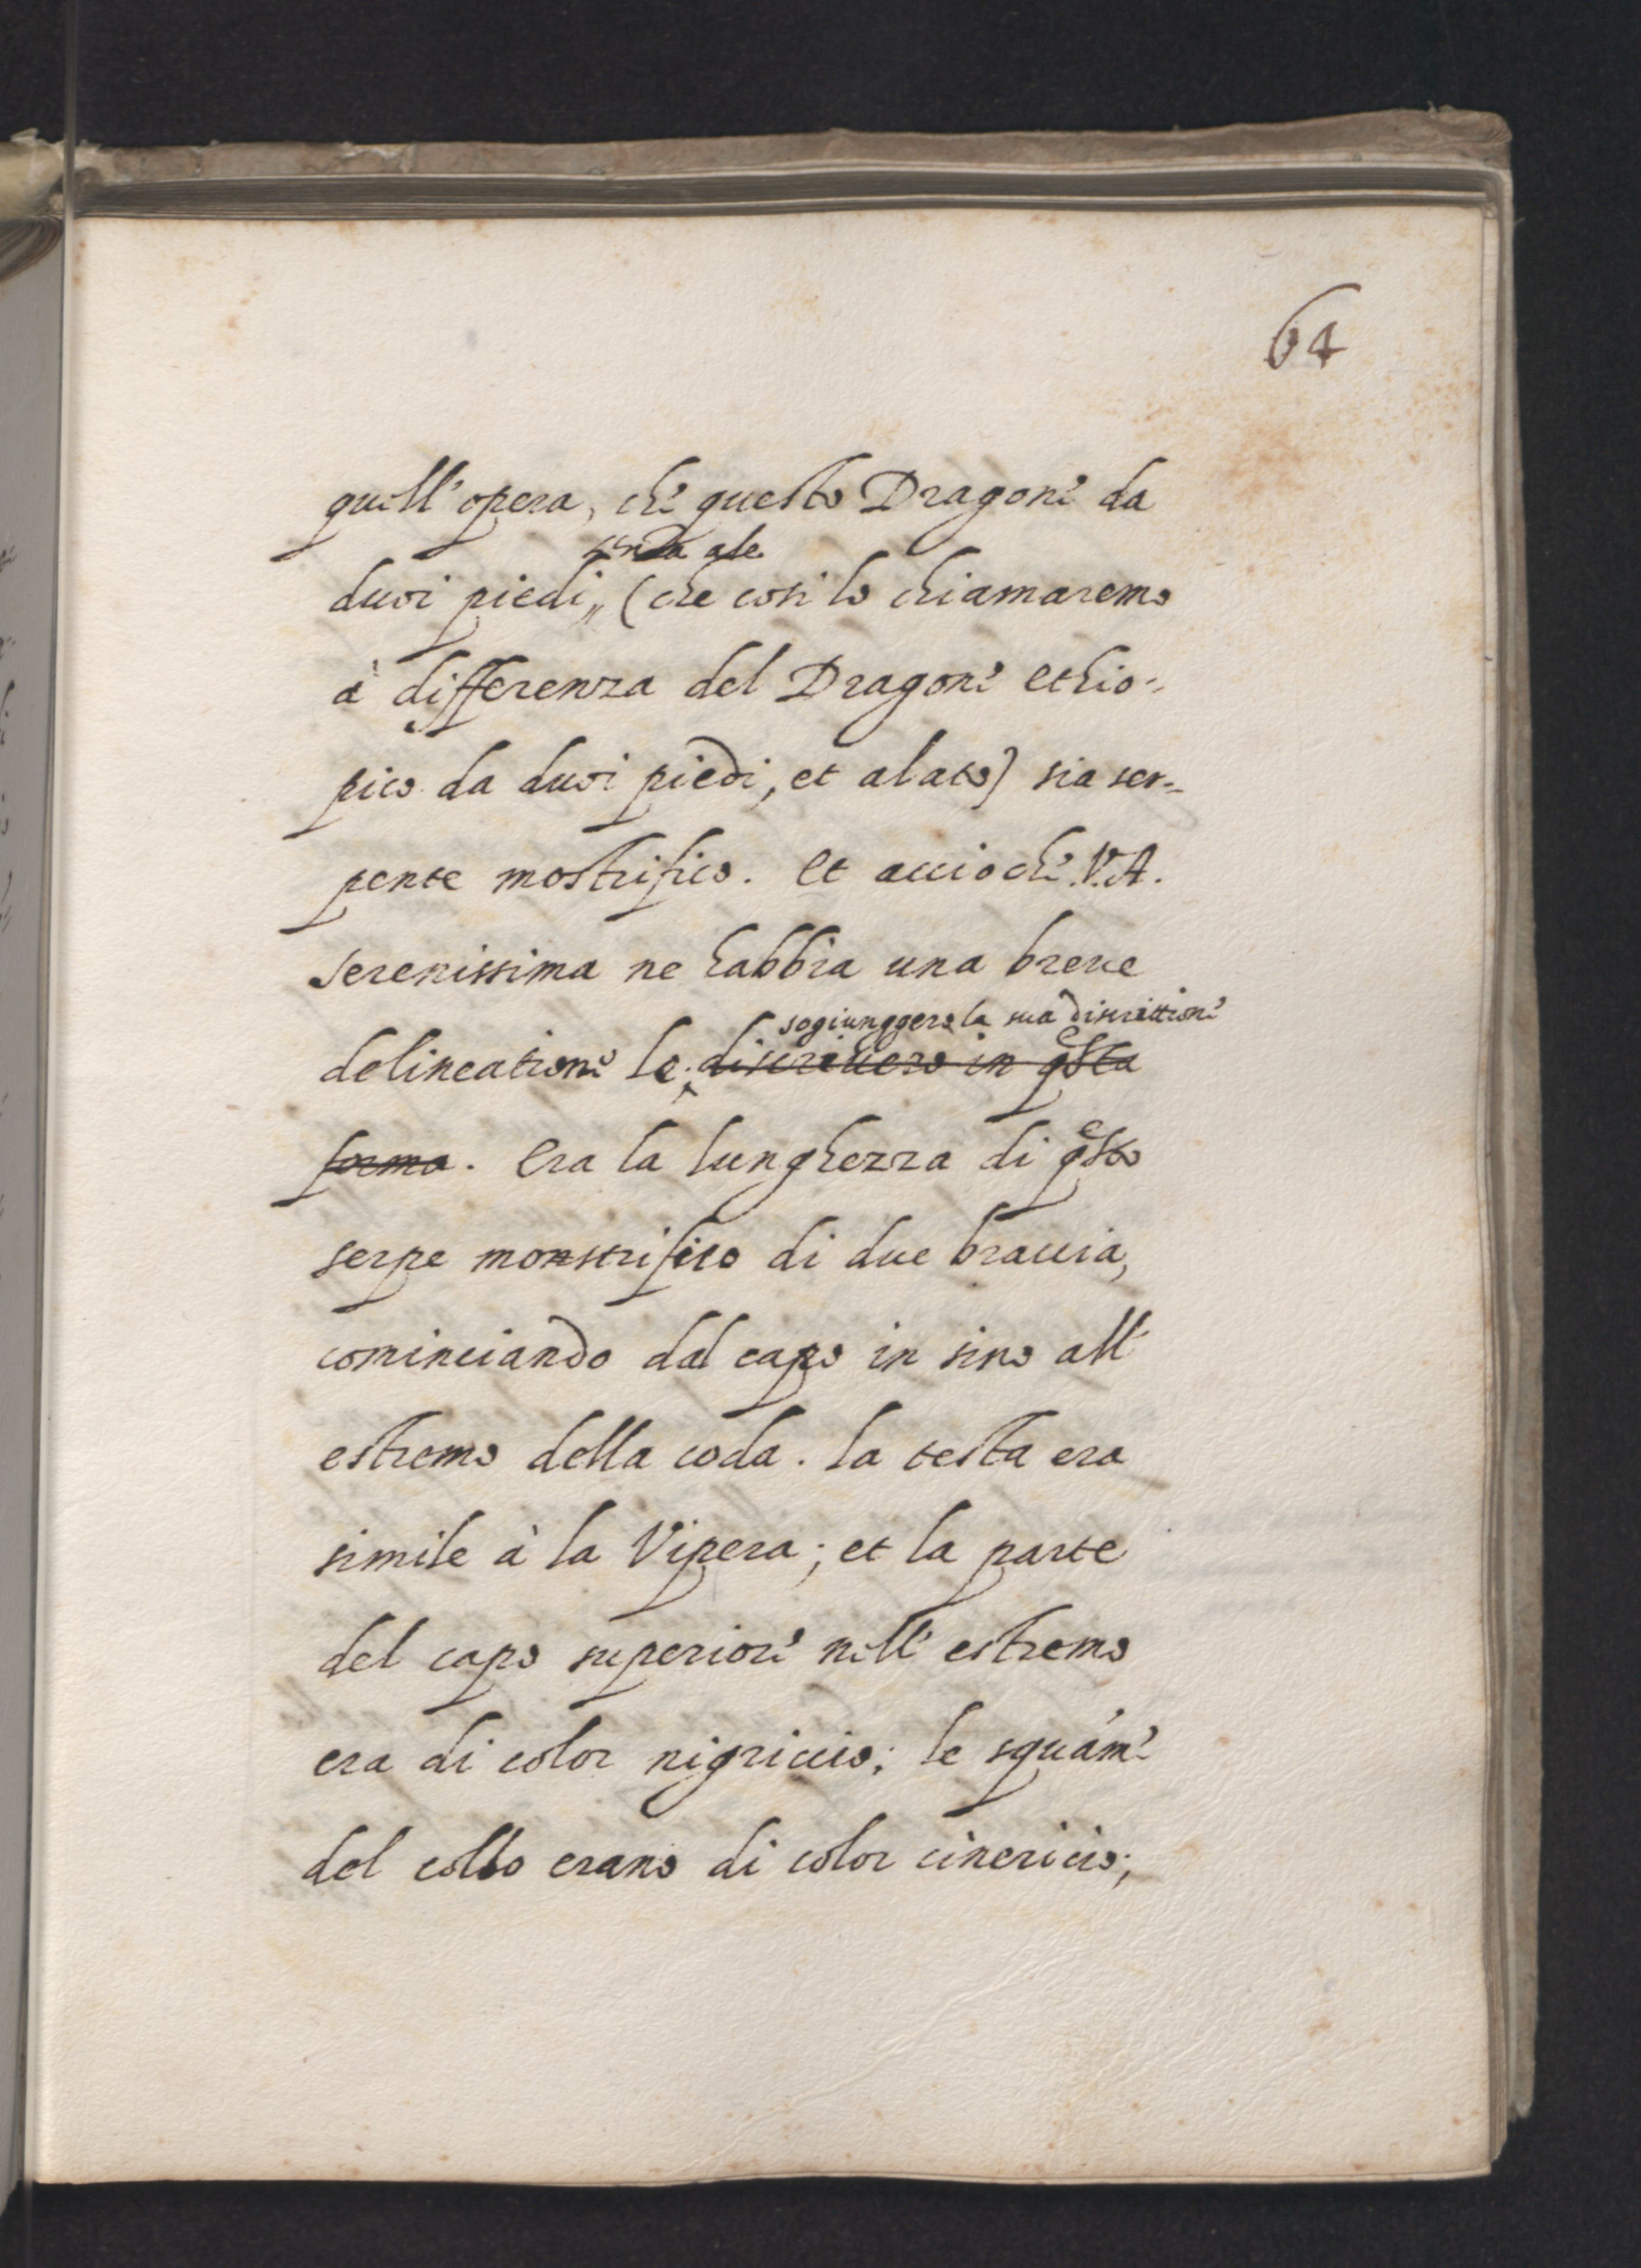 64
quell'opera, che questo Dragone da
senza ale
duoi piedi,, (che cosi lo chiamaremo
à differenza del Dragone Ethio-
pico da duoi piedi, et alato) sia ser-
pente mostrifico. Et accioche V.A.
serenissima ne habbia una breve
sogiunggero la sua discrittione
delineatione le discriuero in qsta
forma. Era la lunghezza di qsto
serpe monstrifico di due braccia,
cominciando dal capo in sino all'
estremo della coda. la testa era
simile à la Vipera; et la parte
del capo superiore nell'estremo
era di color nigriccio; le squáme
del collo erano di color cinericio;